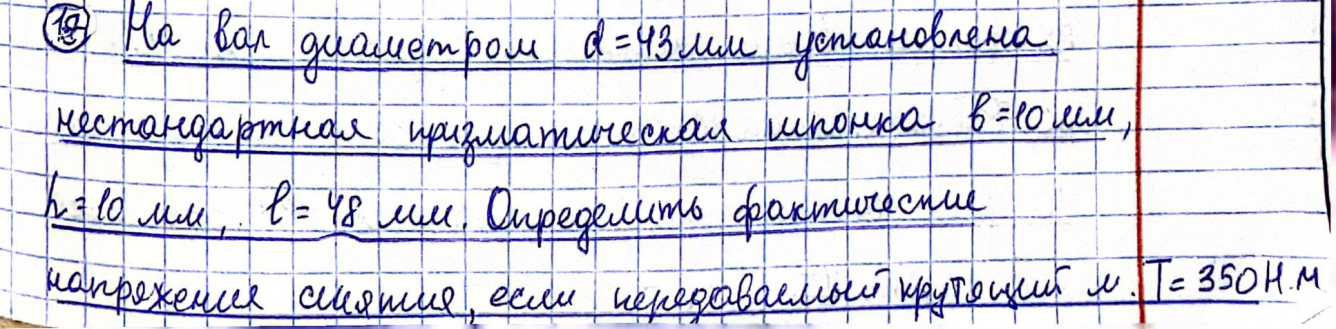 19 На вал диаметром d=43мм установлена
нестандартная призматическая шпонка b=10мм,
h=10 мм, l=48 мм. Определить фактические
напряжения смятия, если передаваемый крутящий м. T=350Н.м